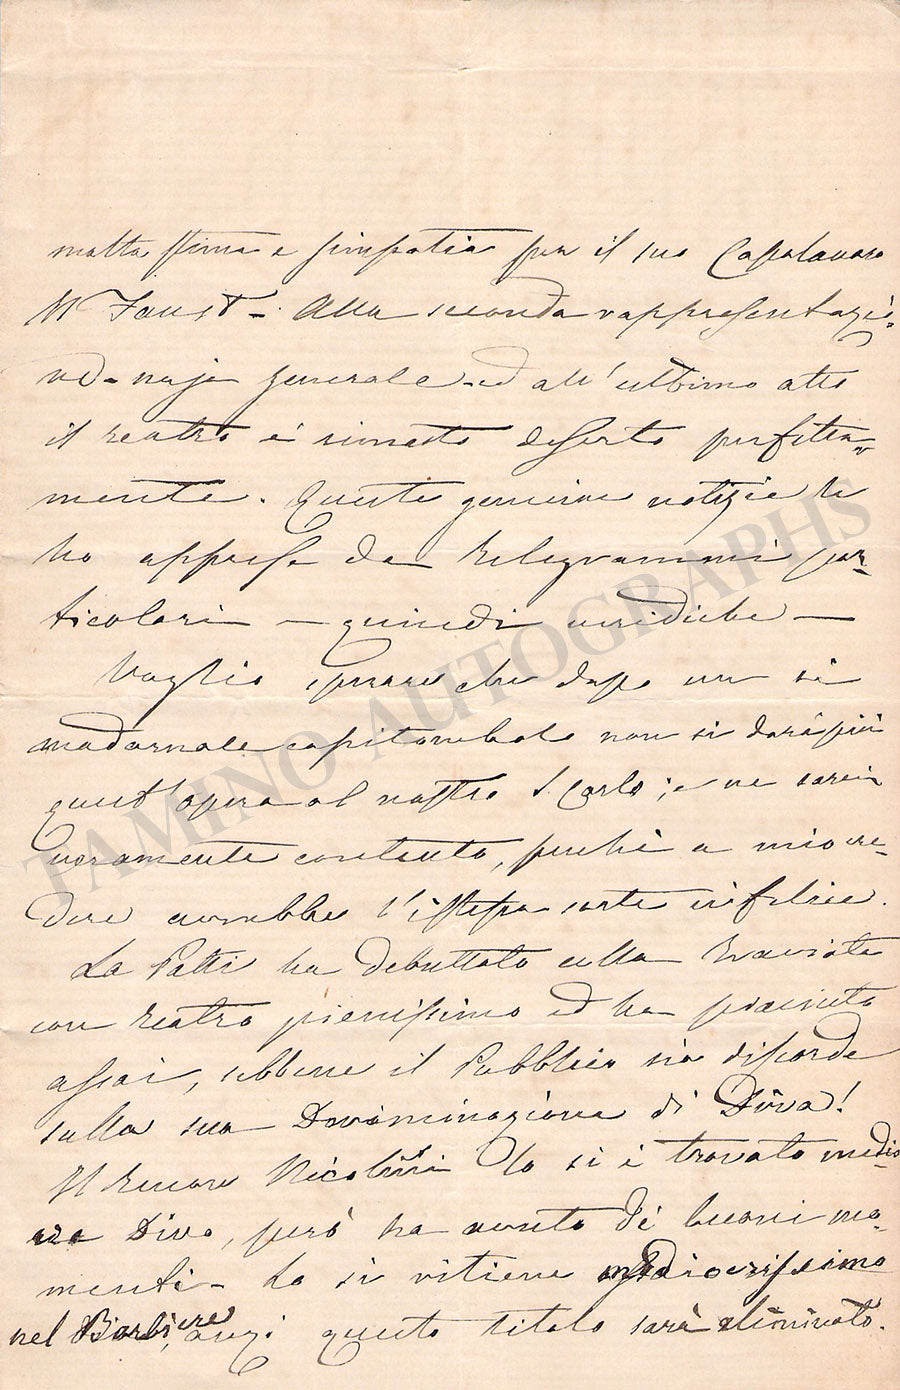 molta stima e simpatia per il suo Capolavoro
Il Faust - Alla seconda rappresentazio=
ne - noja generale - ed all'ultimo atto
il teatro è rimasto deserto perfetta=
mente. Queste genuine notizie le
ho apprese da telegrammi par=
ticolari — quindi veridiche —
Voglio sperare che dopo un sì
madornale capitombolo non si darà più
quest'opera al nostro S. Carlo; e ne sarei
veramente contento, perchè a mio cre=
dere avrebbe l'istessa sorte infelice.
La Patti ha debuttato colla Traviata
con teatro pienissimo ed ha piaciuto
assai, sebbene il Pubblico sia discorde
sulla sua Denominazione di Diva!
Il tenore Nicolini lo si è trovato medio=
Divo, però ha avuto dè buoni mo=
menti - lo si ritiene mediocrissimo
nel Barbiere, anzi questo titolo sarà eliminato.
TAMINO AUTOGRAPHS